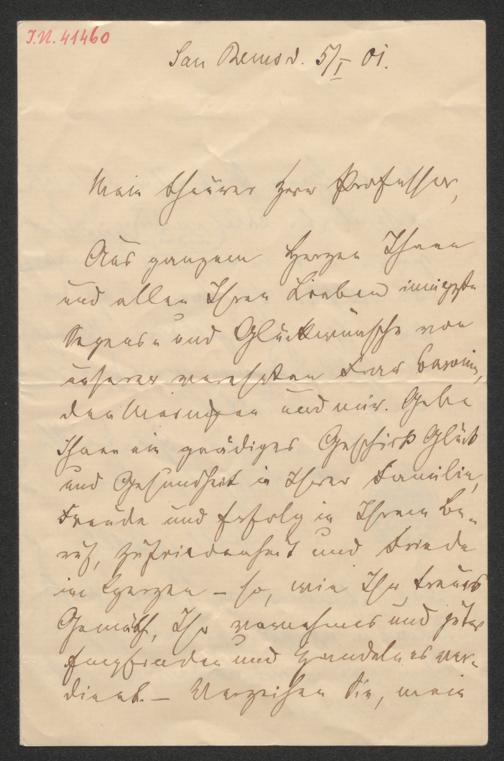 J.N. 41460
San Remo d. 5/I 01.
Mein theurer Herr Professor,
Aus ganzem Herzen Ihnen
und allen Ihren Lieben innigste
Segens- und Glückwünsche von
unserer verehrten Frau Baronin,
den Meinigen und mir. Gebe
Ihnen ein gnädiges Geschick Glück
und Gesundheit in Ihrer Familie,
Freude und Erfolg in Ihrem Be-
ruf, Zufriedenheit und Friede
im Herzen – so, wie Ihr treues
Gemüth, Ihr vornehmes und gutes
Empfinden und Handeln es ver-
dient. – Verzeihen Sie, mein